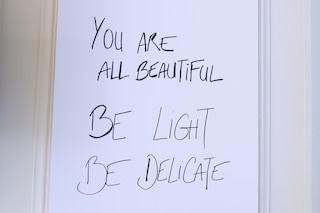 YOU ARE
ALL BEAUTIFUL
BE LIGHT
BE DELICATE